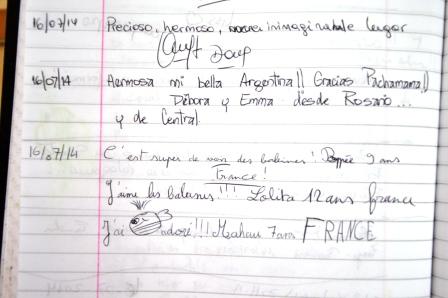 16/07/14 Precioso, hermoso, inimaginable lugar
16/07/14 Hermosa mi bella Argentina!! Gracias Pachamama!!
Débora y Emma desde Rosario...
y de Central.
16/07/14 C'est super de voir des baleines! 9 ans
France!
J'aime les baleines!!! Lolita 12 ans france
J'ai adoré!!! 7 ans FRANCE